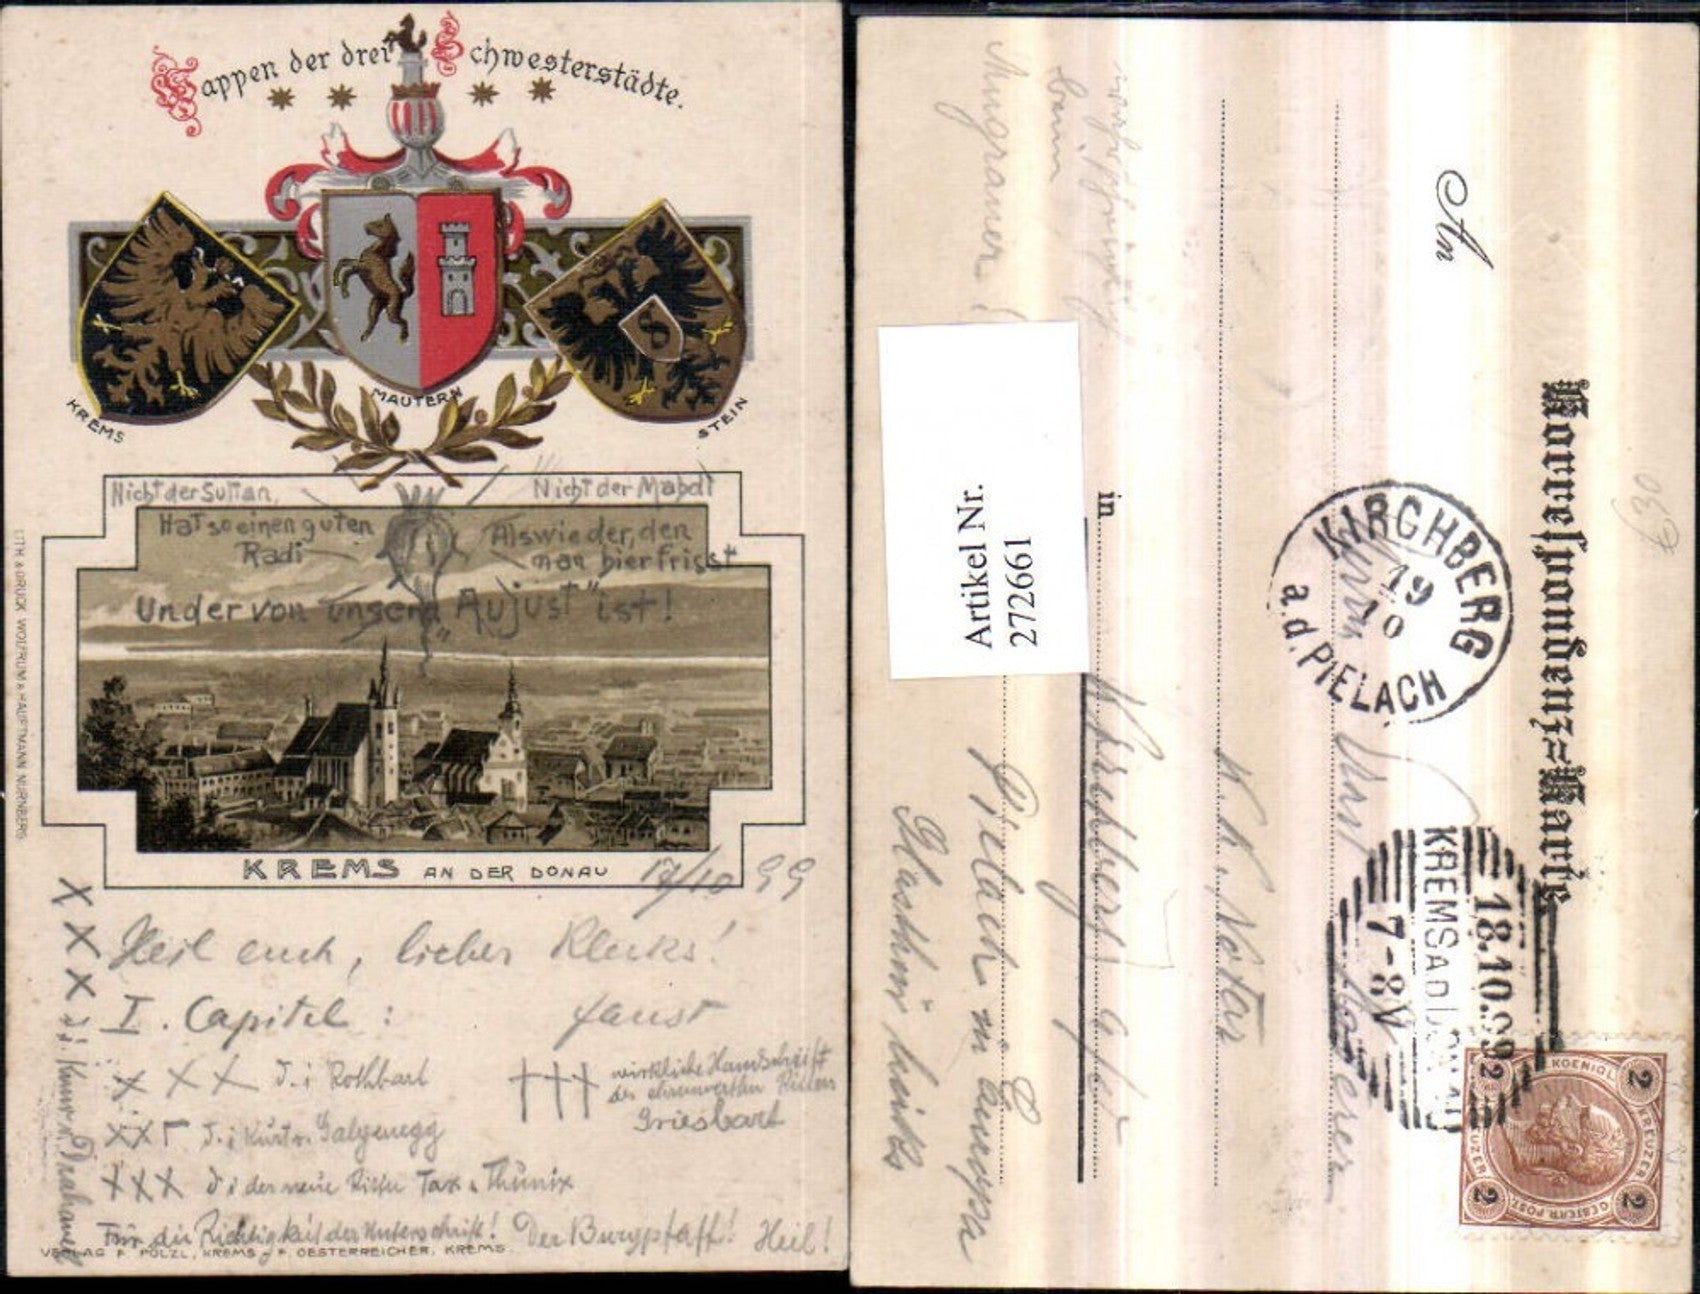 Wappen der drei Schwesterstädte.
KREMS
MAUTERN
STEIN
Nicht der Sultan,
Nicht der Mahdi
Hat so einen guten
Radi
Als wieder, den
man hier frisst
Und er von "unserm Aujust" ist!
KREMS AN DER DONAU
17/10 99
Heil euch, lieber Klecks!
I. Capitel: faust
XXX d. i. Rothbart
††† wirkliche Handschrift
des ehrenwerten Ritters
Griesbart
d. i. Kurt v. Galgenegg
XXX d i der neue Ritter Tax v. Thünix
XXX d. i. Kuno v. Drahawel
Für die Richtigkeit der Unterschrift! Der Burgpfaff! Heil!
VERLAG F. PÖLZL, KREMS - F. OESTERREICHER, KREMS
LITH. & DRUCK WOLFRUM & HAUPTMANN NÜRNBERG
Korrespondenz-Karte
An
Herrn
K. K. Notar
in Kirchberg a/d
Pielach in Europa
Glasthür links
Artikel Nr.
272661
KIRCHBERG
19
10
a.d. PIELACH
18.10.99
KREMS A D DONAU
7-8V
2 KREUZER 2
KAIS. KOENIGL.
OESTERR. POST
€30